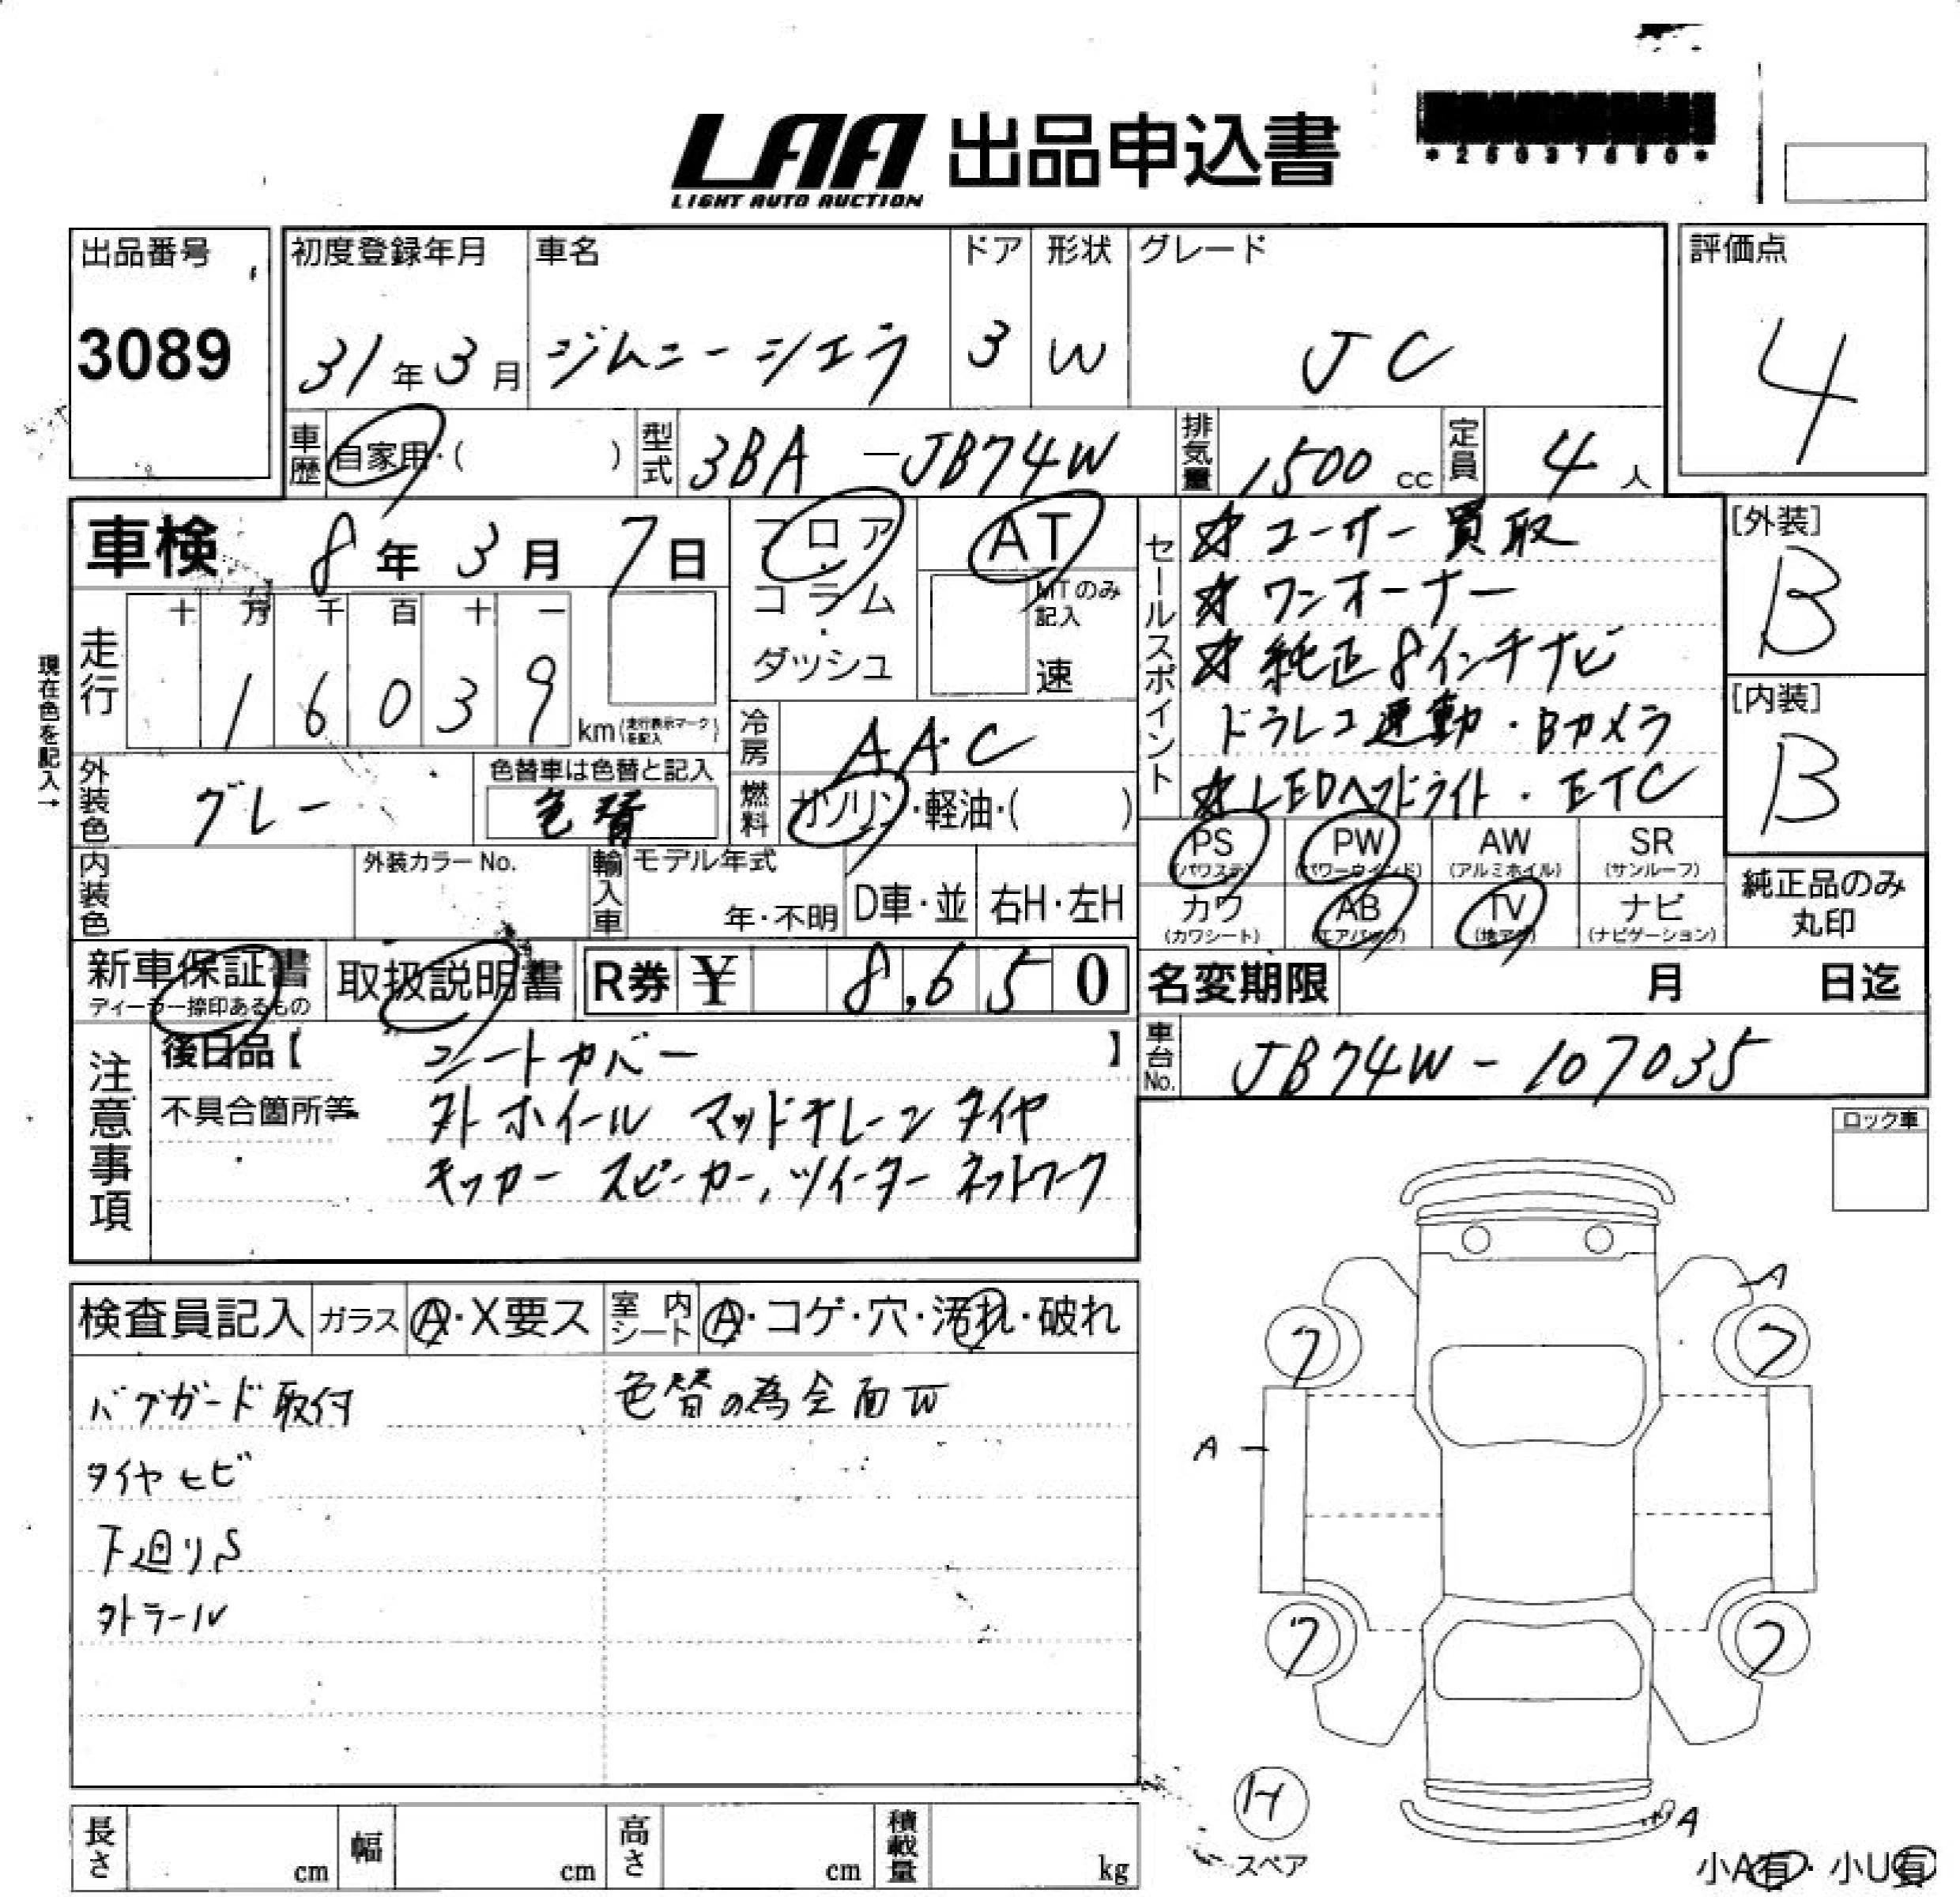 LAA 出品申込書
LIGHT AUTO AUCTION
*25037690*
出品番号
3089
初度登録年月
31年3月
車名
ジムニーシエラ
ドア
3
形状
W
グレード
JC
評価点
4
車歴
自家用・( )
型式
3BA-JB74W
排気量
1500cc
定員
4人
車検 8年3月7日
現在色を記入→
走行
十 万 千 百 十 一
1 6 0 3 9 km(走行表示マークを記入)
フロア
コラム
・
ダッシュ
AT
MTのみ記入
速
冷房
AAC
燃料
ガソリン・軽油・( )
外装色
グレー
色替車は色替と記入
色替
内装色
外装カラーNo.
輸入車
モデル年式
年・不明
D車・並
右H・左H
セールスポイント
☆ユーザー買取
☆ワンオーナー
☆純正8インチナビ
ドラレコ連動・Bカメラ
☆LEDヘッドライト・ETC
[外装]
B
[内装]
B
PS
(パワステ)
PW
(パワーウインド)
AW
(アルミホイル)
SR
(サンルーフ)
カワ
(カワシート)
AB
(エアバッグ)
TV
(地デジ)
ナビ
(ナビゲーション)
純正品のみ
丸印
新車保証書
ディーラー捺印あるもの
取扱説明書
R券 ¥ 8,650
名変期限 月 日迄
車台No.
JB74W-107035
注意事項
後日品【 】
シートカバー
不具合箇所等
外ホイール マッドテレーンタイヤ
キッカー スピーカー,ツイーター ネットワーク
ロック車
検査員記入
ガラス
A・X要ス
室内シート
A・コゲ・穴・汚れ・破れ
バグガード取付
色替の為全面W
タイヤヒビ
下廻りS
外ラール
A
7
7
A
7
7
14
スペア
A
小A有・小U有
長さ cm
幅 cm
高さ cm
積載量 kg